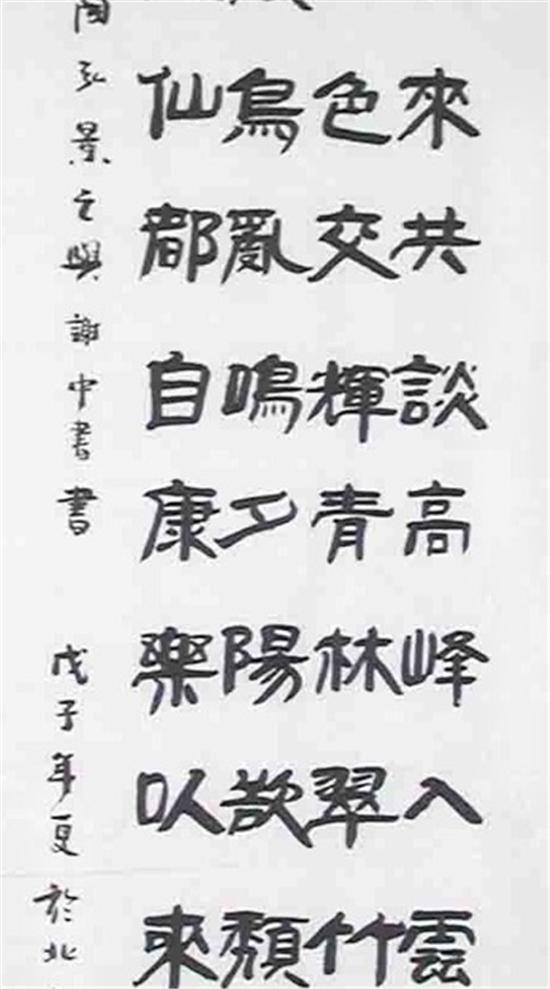 來共談高峰入雲
色交輝青林翠竹
鳥亂鳴夕陽欲頹
仙都自康樂以來
陶弘景之與謝中書書 戊子年夏於北